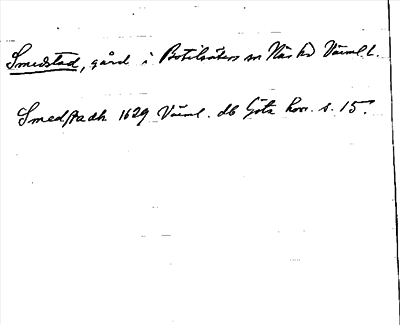 Smedstad, gård i Botilsäters sn Näs hd Värml.
Smedstadh 1629 Värml. db Göta hovr. s. 15.